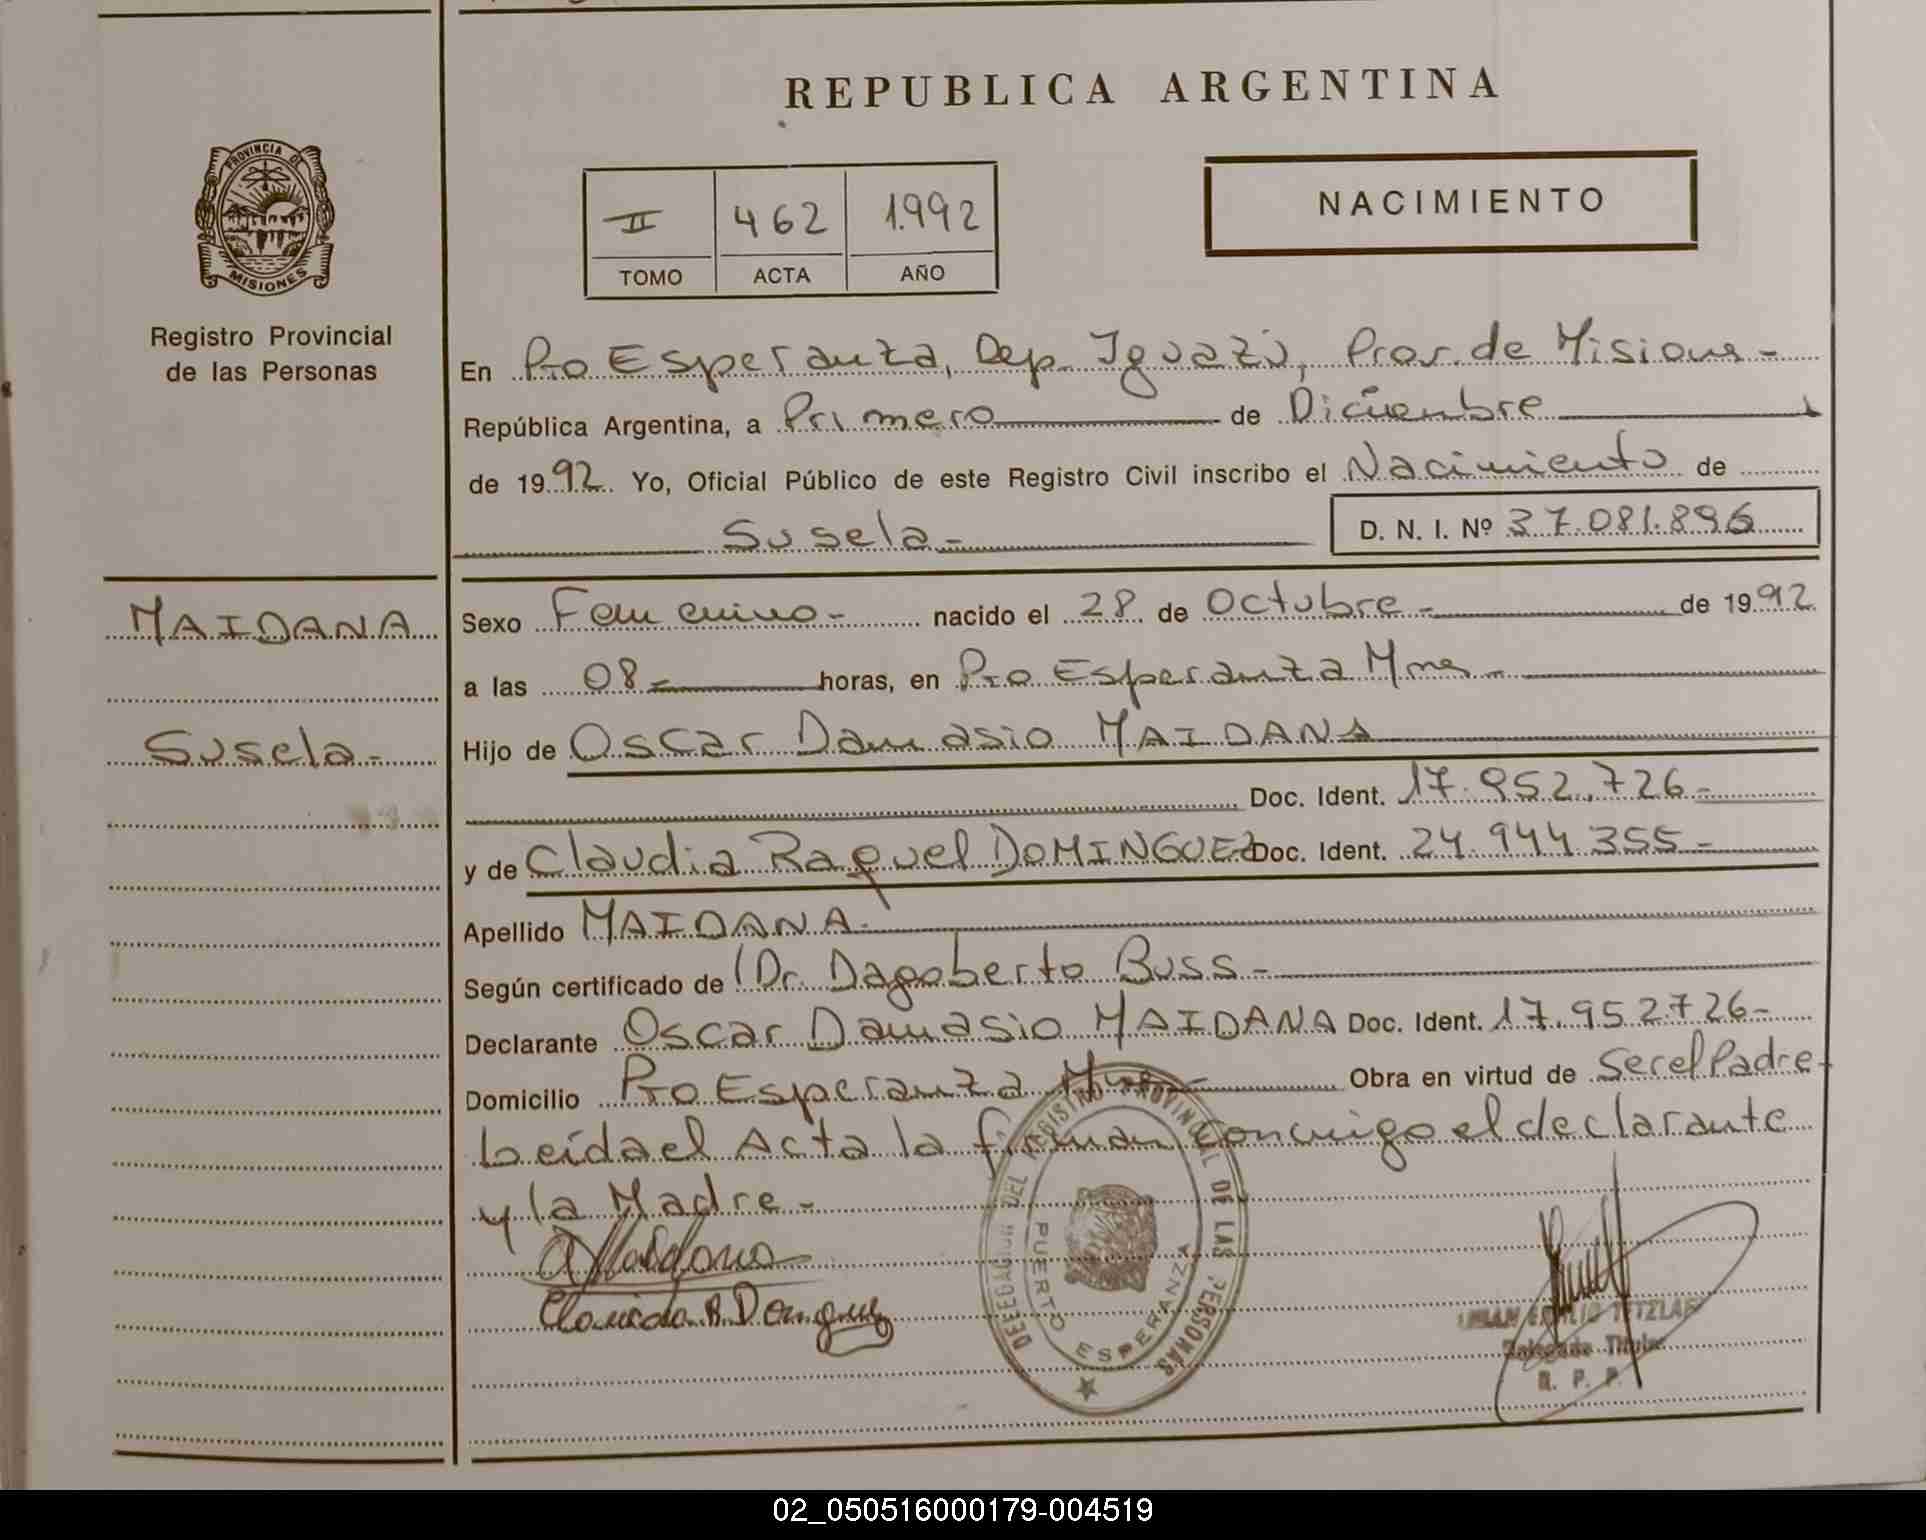 REPUBLICA ARGENTINA
PROVINCIA DE
MISIONES
Registro Provincial
de las Personas
NACIMIENTO
II 462 1.992
TOMO ACTA AÑO
En Pto Esperanza, Dep. Iguazú, Prov. de Misiones -
República Argentina, a Primero de Diciembre
de 1992. Yo, Oficial Público de este Registro Civil inscribo el Nacimiento de
Susela - D. N. I. Nº 37.081.896
MAIDANA
Susela -
Sexo Femenino - nacido el 28 de Octubre - de 1992
a las 08 - horas, en Pto Esperanza Mnes -
Hijo de Oscar Damasio MAIDANA
Doc. Ident. 17.952.726 -
y de Claudia Raquel DOMINGUEZ Doc. Ident. 24.944.355 -
Apellido MAIDANA -
Según certificado de Dr. Dagoberto Buss -
Declarante Oscar Damasio MAIDANA Doc. Ident. 17.952726 -
Domicilio Pto Esperanza Mnes - Obra en virtud de Ser el Padre -
Leída el Acta la firman conmigo el declarante
y la Madre -
DELEGACION DEL REGISTRO PROVINCIAL DE LAS PERSONAS
PUERTO ESPERANZA
Delegado Titular
R. P. P.
02_050516000179-004519